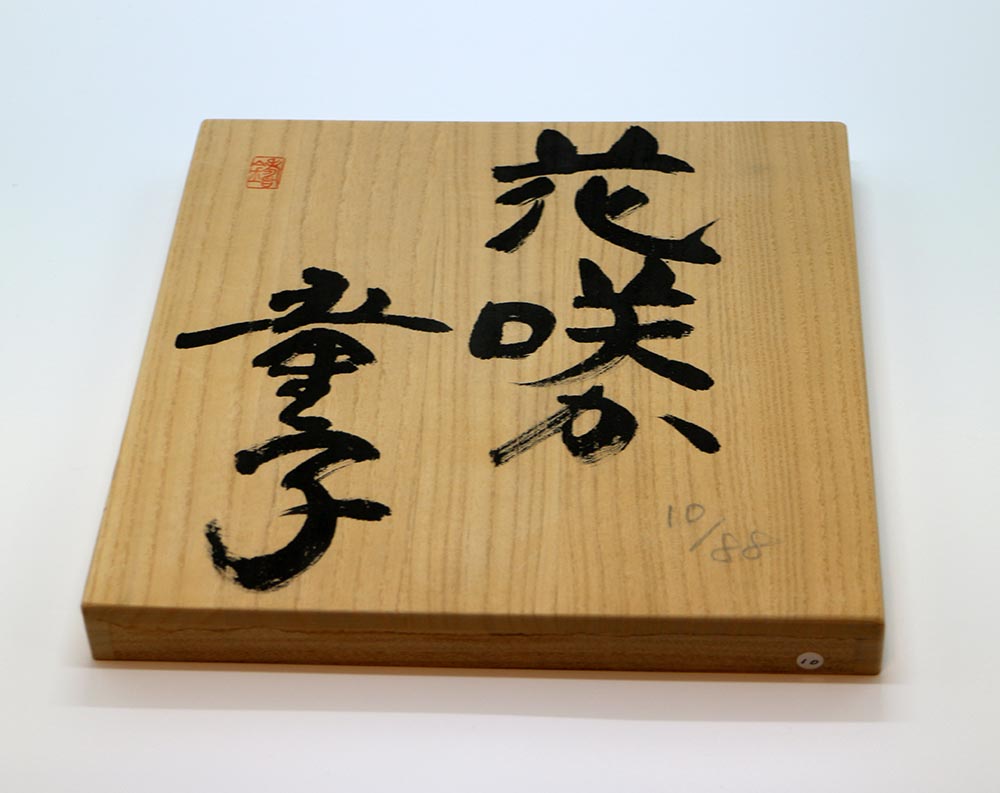 花咲か
童子
10/88
10